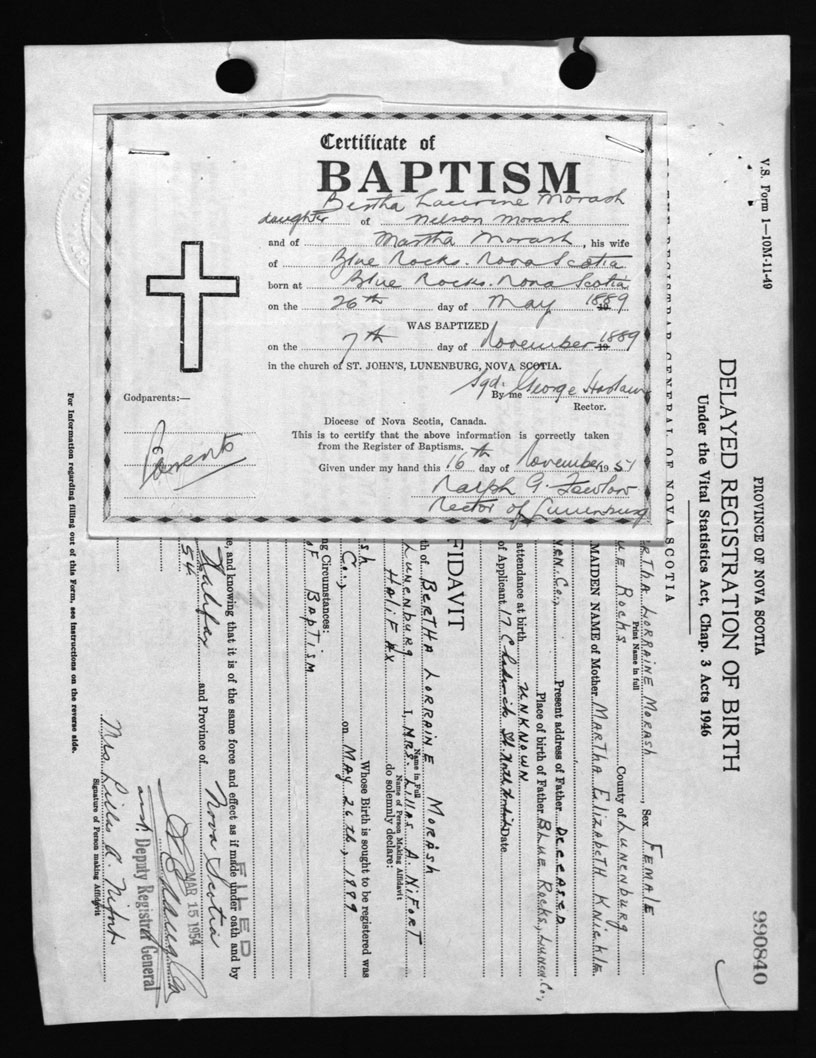 Certificate of
BAPTISM
Bertha Laurine Morash
daughter of Nelson Morash
and of Martha Morash, his wife
of Blue Rocks. Nova Scotia
born at Blue Rocks. Nova Scotia
on the 26th day of May 1889
WAS BAPTIZED
on the 7th day of November 1889
in the church of ST. JOHN'S, LUNENBURG, NOVA SCOTIA.
Sgd. George Haslam
By me
Rector.
Godparents:—
Parents
Diocese of Nova Scotia, Canada.
This is to certify that the above information is correctly taken
from the Register of Baptisms.
Given under my hand this 16th day of November 19
Ralph G.
Rector of Lunenburg
V.S. Form 1—10M-11-49
PROVINCE OF NOVA SCOTIA
990840
DELAYED REGISTRATION OF BIRTH
Under the Vital Statistics Act, Chap. 3 Acts 1946
THE REGISTRAR GENERAL OF NOVA SCOTIA
RTHA LORRAINE MORASH, Sex FEMALE
Print Name in full
UE ROCKS County of LUNENBURG.
MAIDEN NAME of Mother MARTHA ELIZABETH KNICKLE
NEN. Co., Present address of Father DECEASED
Place of birth of Father BLUE ROCKS, LUNEN. Co.,
attendance at birth UNKNOWN
of Applicant 17 St. Date
FIDAVIT
th of BERTHA LORRAINE MORASH
Name in Full
LUNENBURG I, MRS. LILLAS A. NIFORT
Name of Person Making Affidavit
HALIFAX do solemnly declare:
Whose Birth is sought to be registered was
sh
Co., on MAY 26th, 1889
ng Circumstances:
OF BAPTISM
e, and knowing that it is of the same force and effect as if made under oath and by
Halifax and Province of Nova Scotia
54
FILED
MAR 15 1954
Deputy Registrar General
Mrs Lillas A. Nifort
Signature of Person making Affidavit
For information regarding filling out of this Form, see instructions on the reverse side.